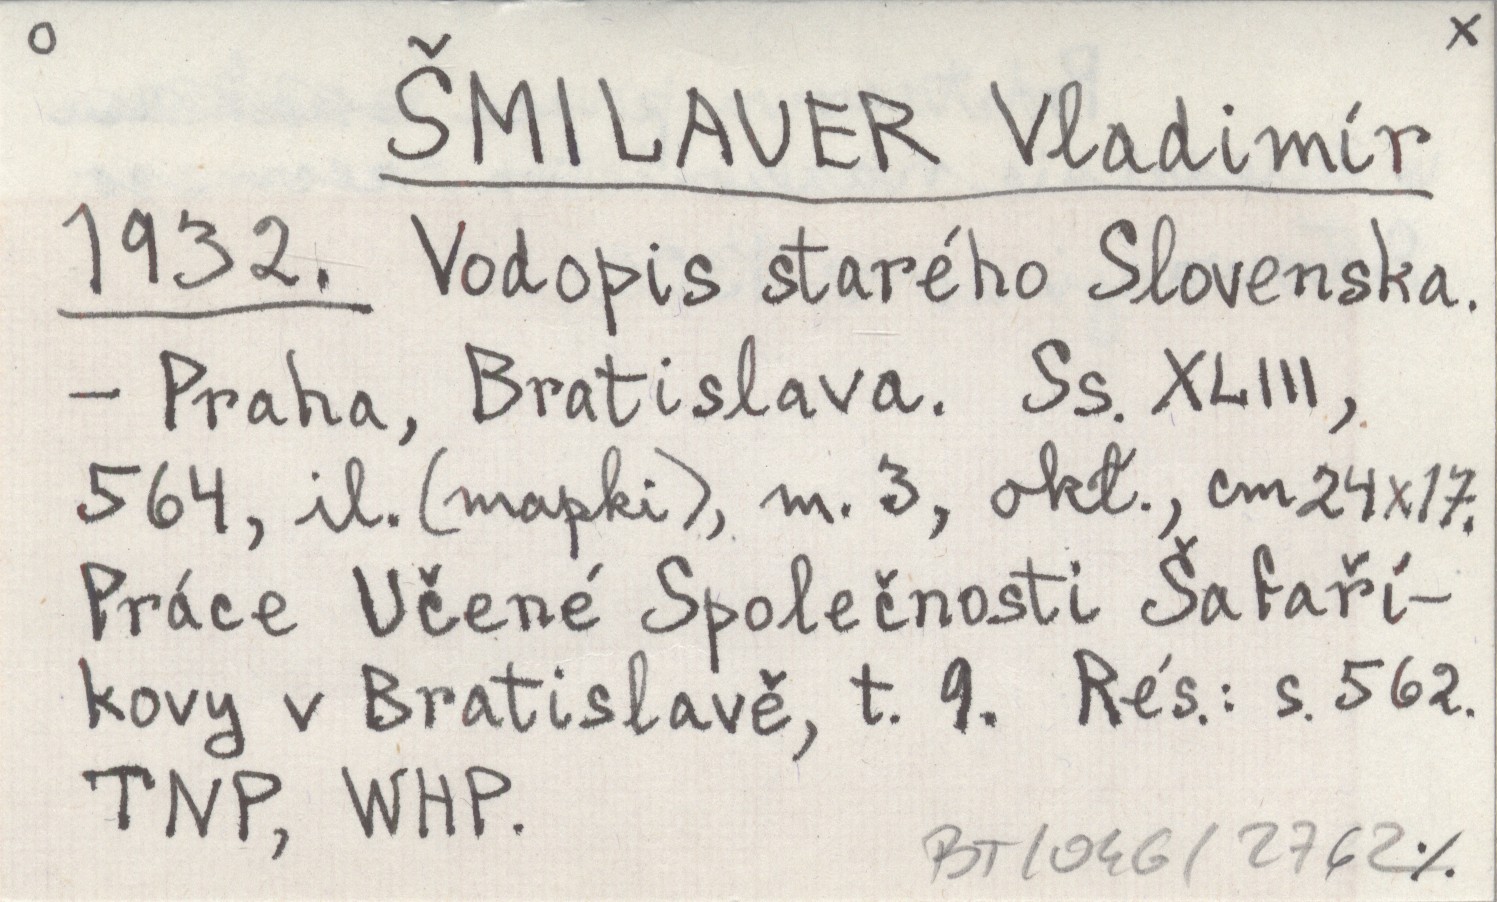 o x
ŠMILAUER Vladimír
1932. Vodopis starého Slovenska.
- Praha, Bratislava. Ss. XLIII,
564, il. (mapki), m. 3, okł., cm 24x17.
Práce Učené Společnosti Šafaří-
kovy v Bratislavě, t. 9. Rés.: s. 562.
TNP, WHP.
BT/046/2762 ./.